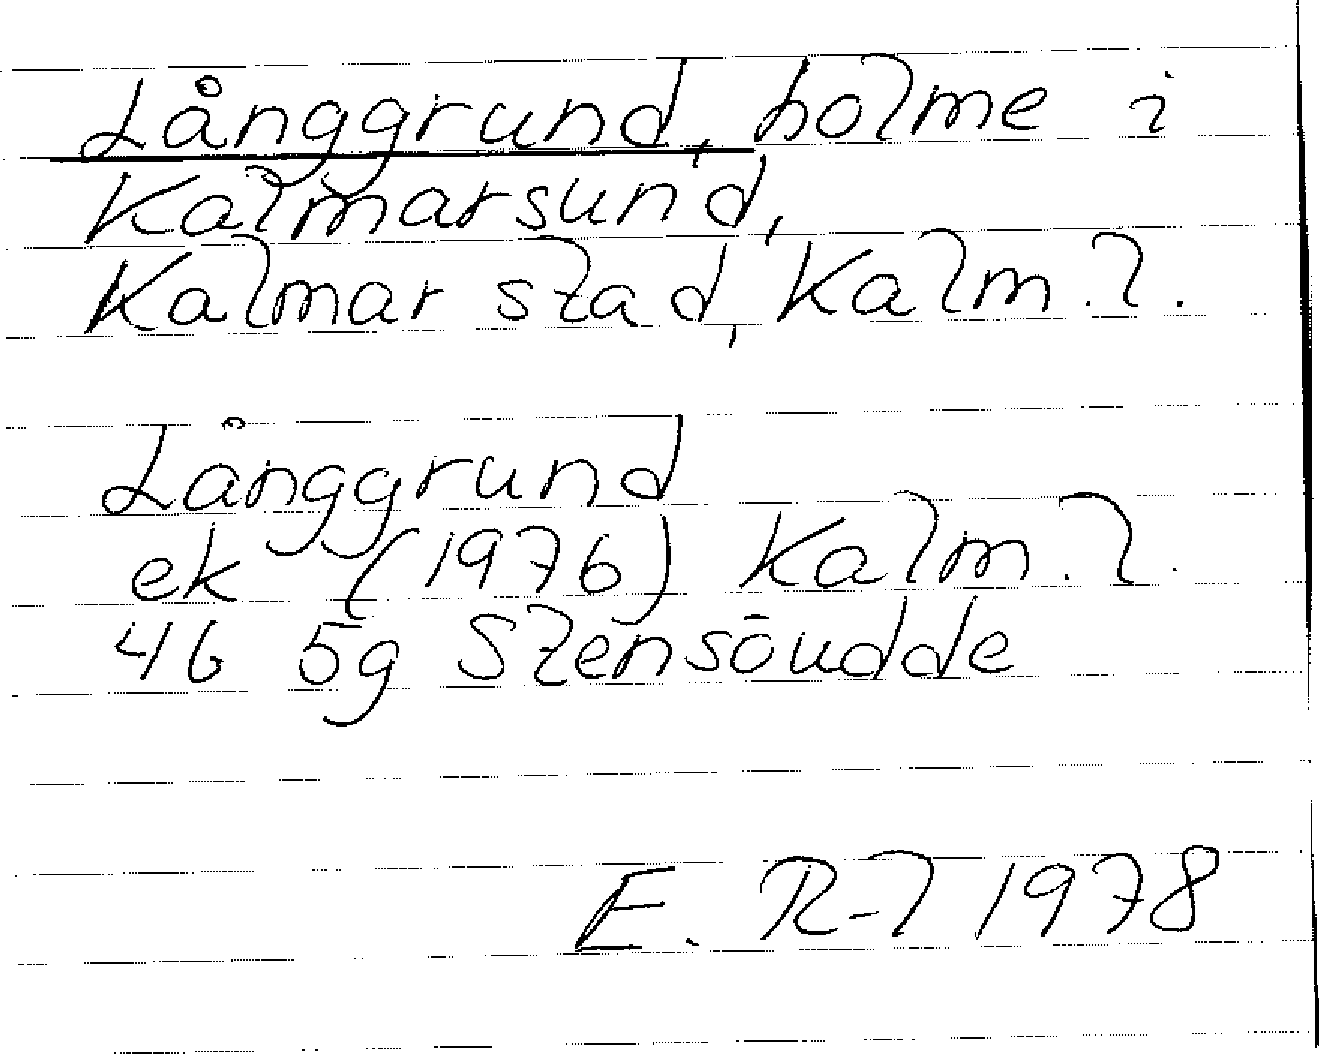 Långgrund, holme i
Kalmarsund,
Kalmar stad, Kalm.l.
Långgrund
ek (1976) Kalm.l.
4G 5g Stensöudde
E. R-l 1978